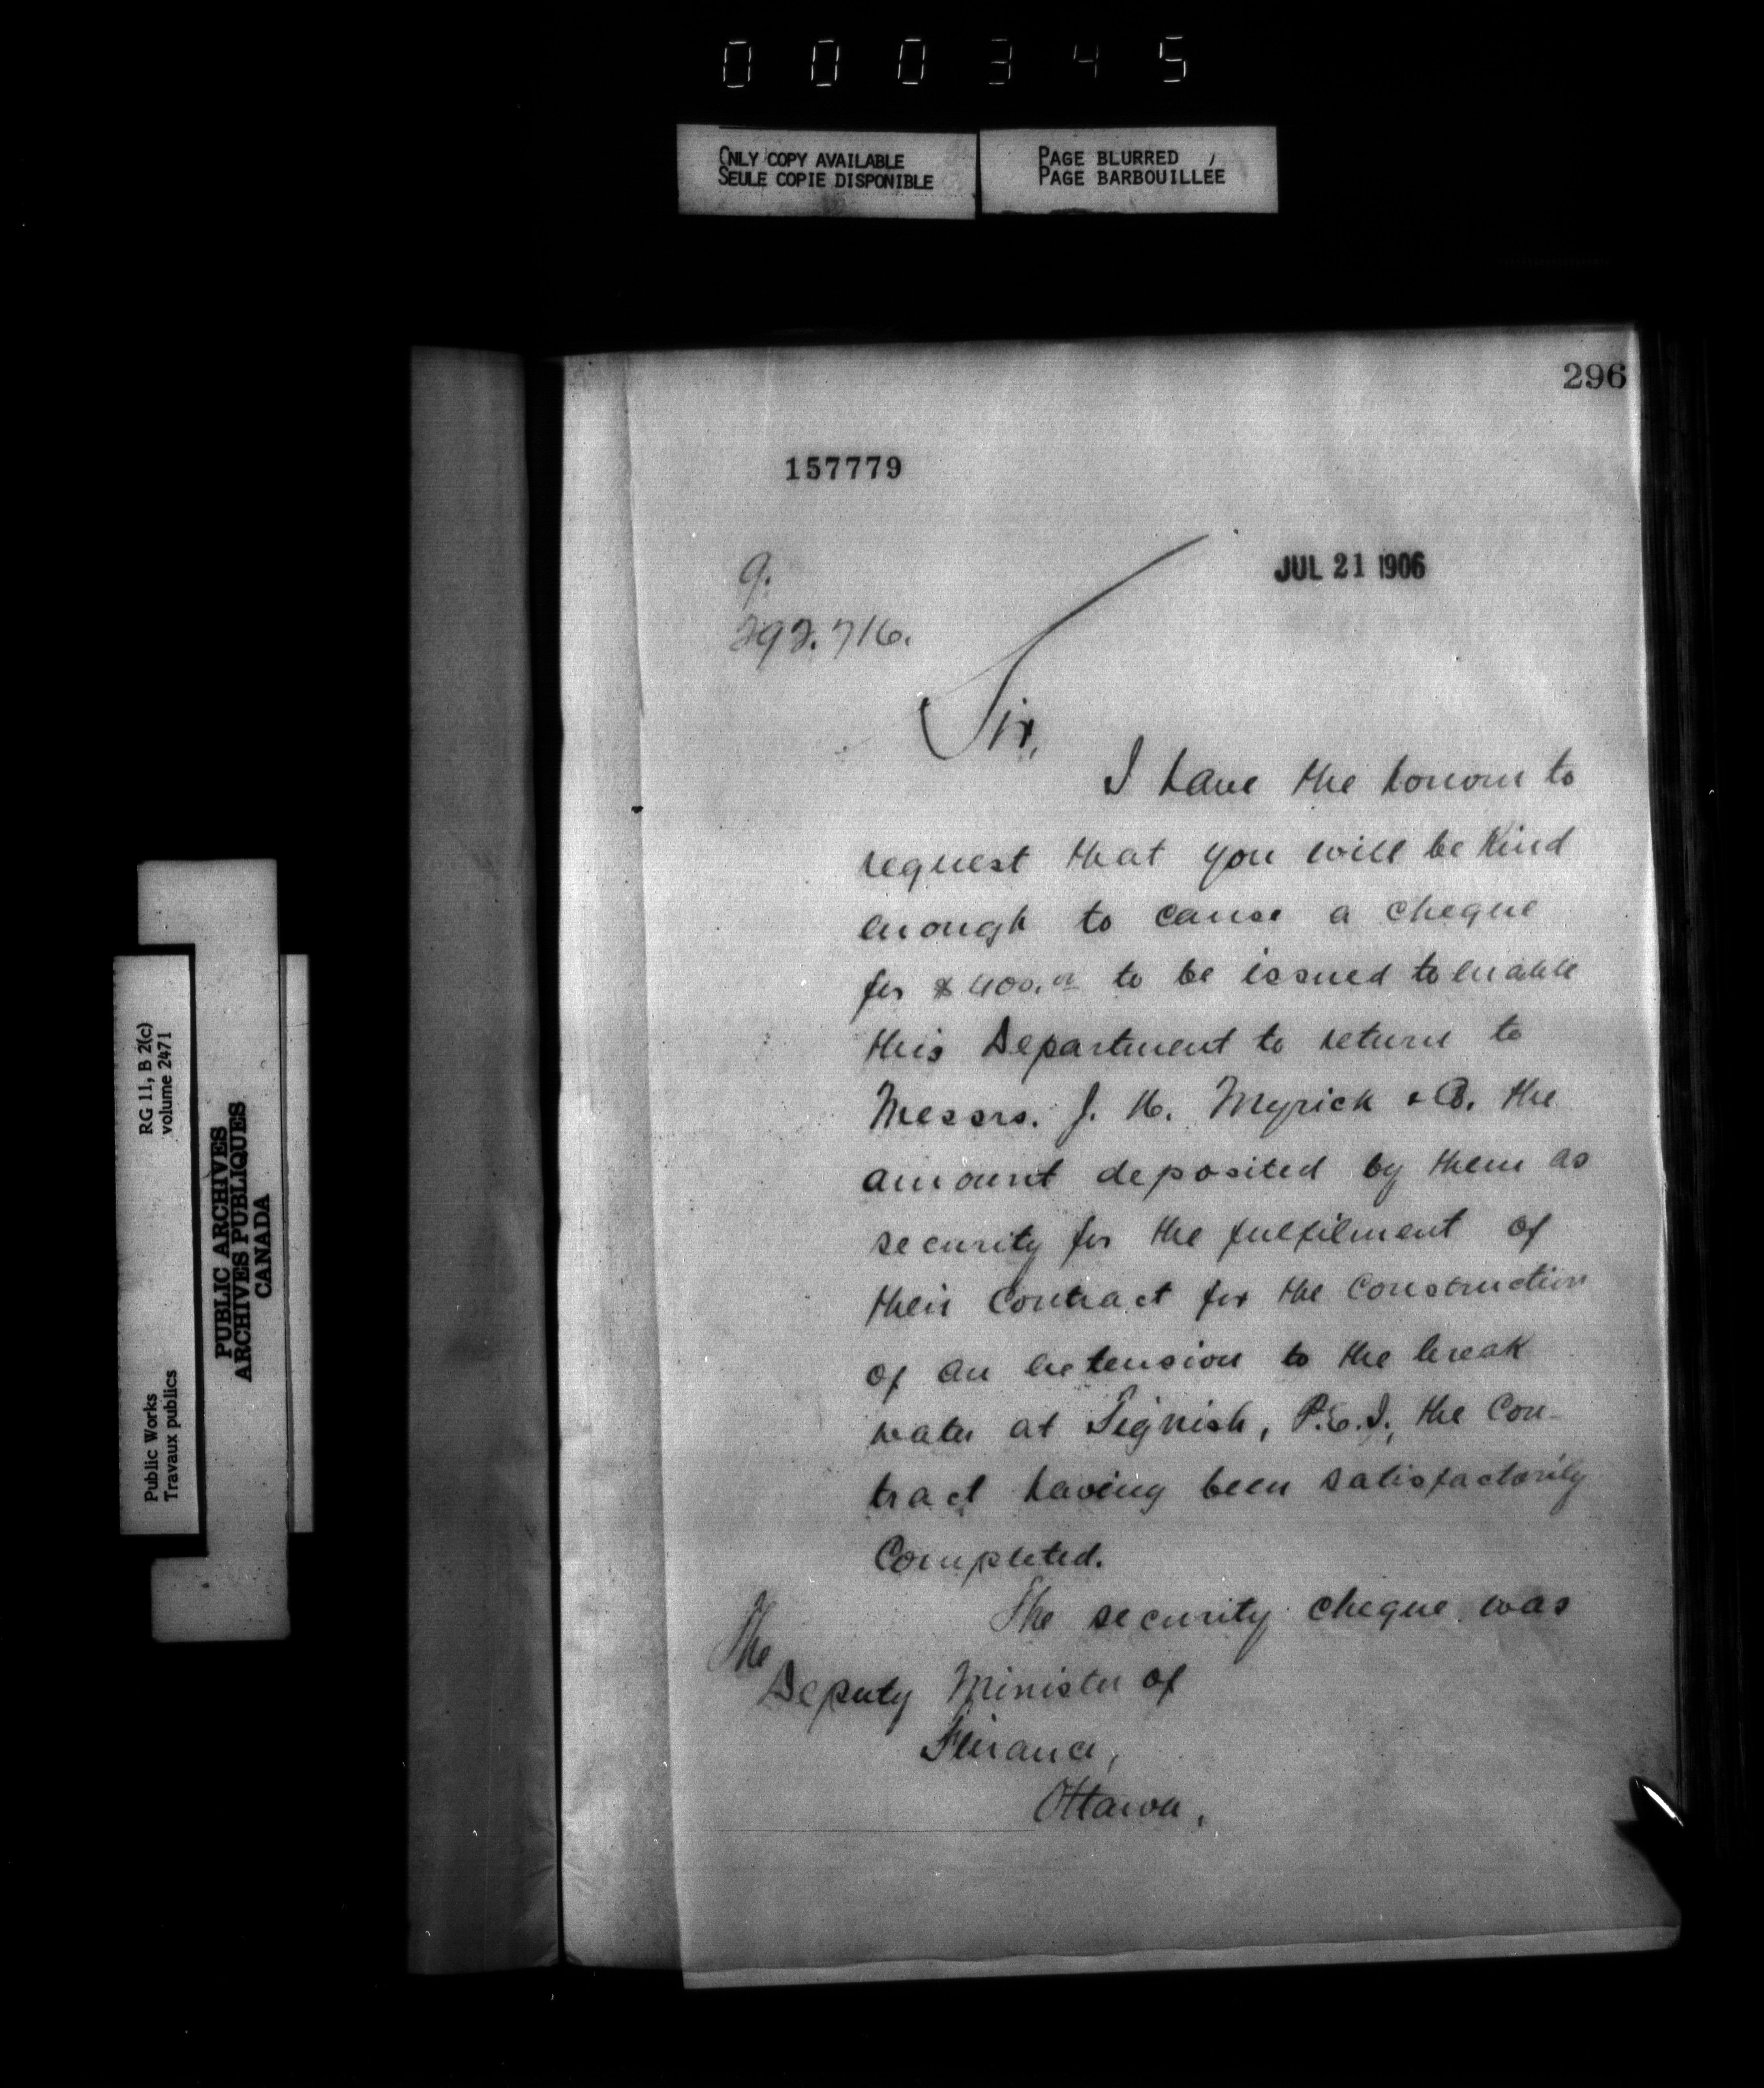 000345
ONLY COPY AVAILABLE
SEULE COPIE DISPONIBLE
PAGE BLURRED
PAGE BARBOUILLÉE
296
157779
JUL 21 1906
9.
292.716.
Sir,
I have the honour to
request that you will be kind
enough to cause a cheque
for $400.00 to be issued to enable
this Department to return to
Messrs. J. H. Myrick & Co. the
amount deposited by them as
security for the fulfilment of
their contract for the construction
of an extension to the break
water at Tignish, P.E.I., the con-
tract having been satisfactorily
completed.
The security cheque was
The
Deputy Minister of
Finance,
Ottawa,
Public Works
Travaux publics
RG 11, B 2(c)
volume 2471
PUBLIC ARCHIVES
ARCHIVES PUBLIQUES
CANADA